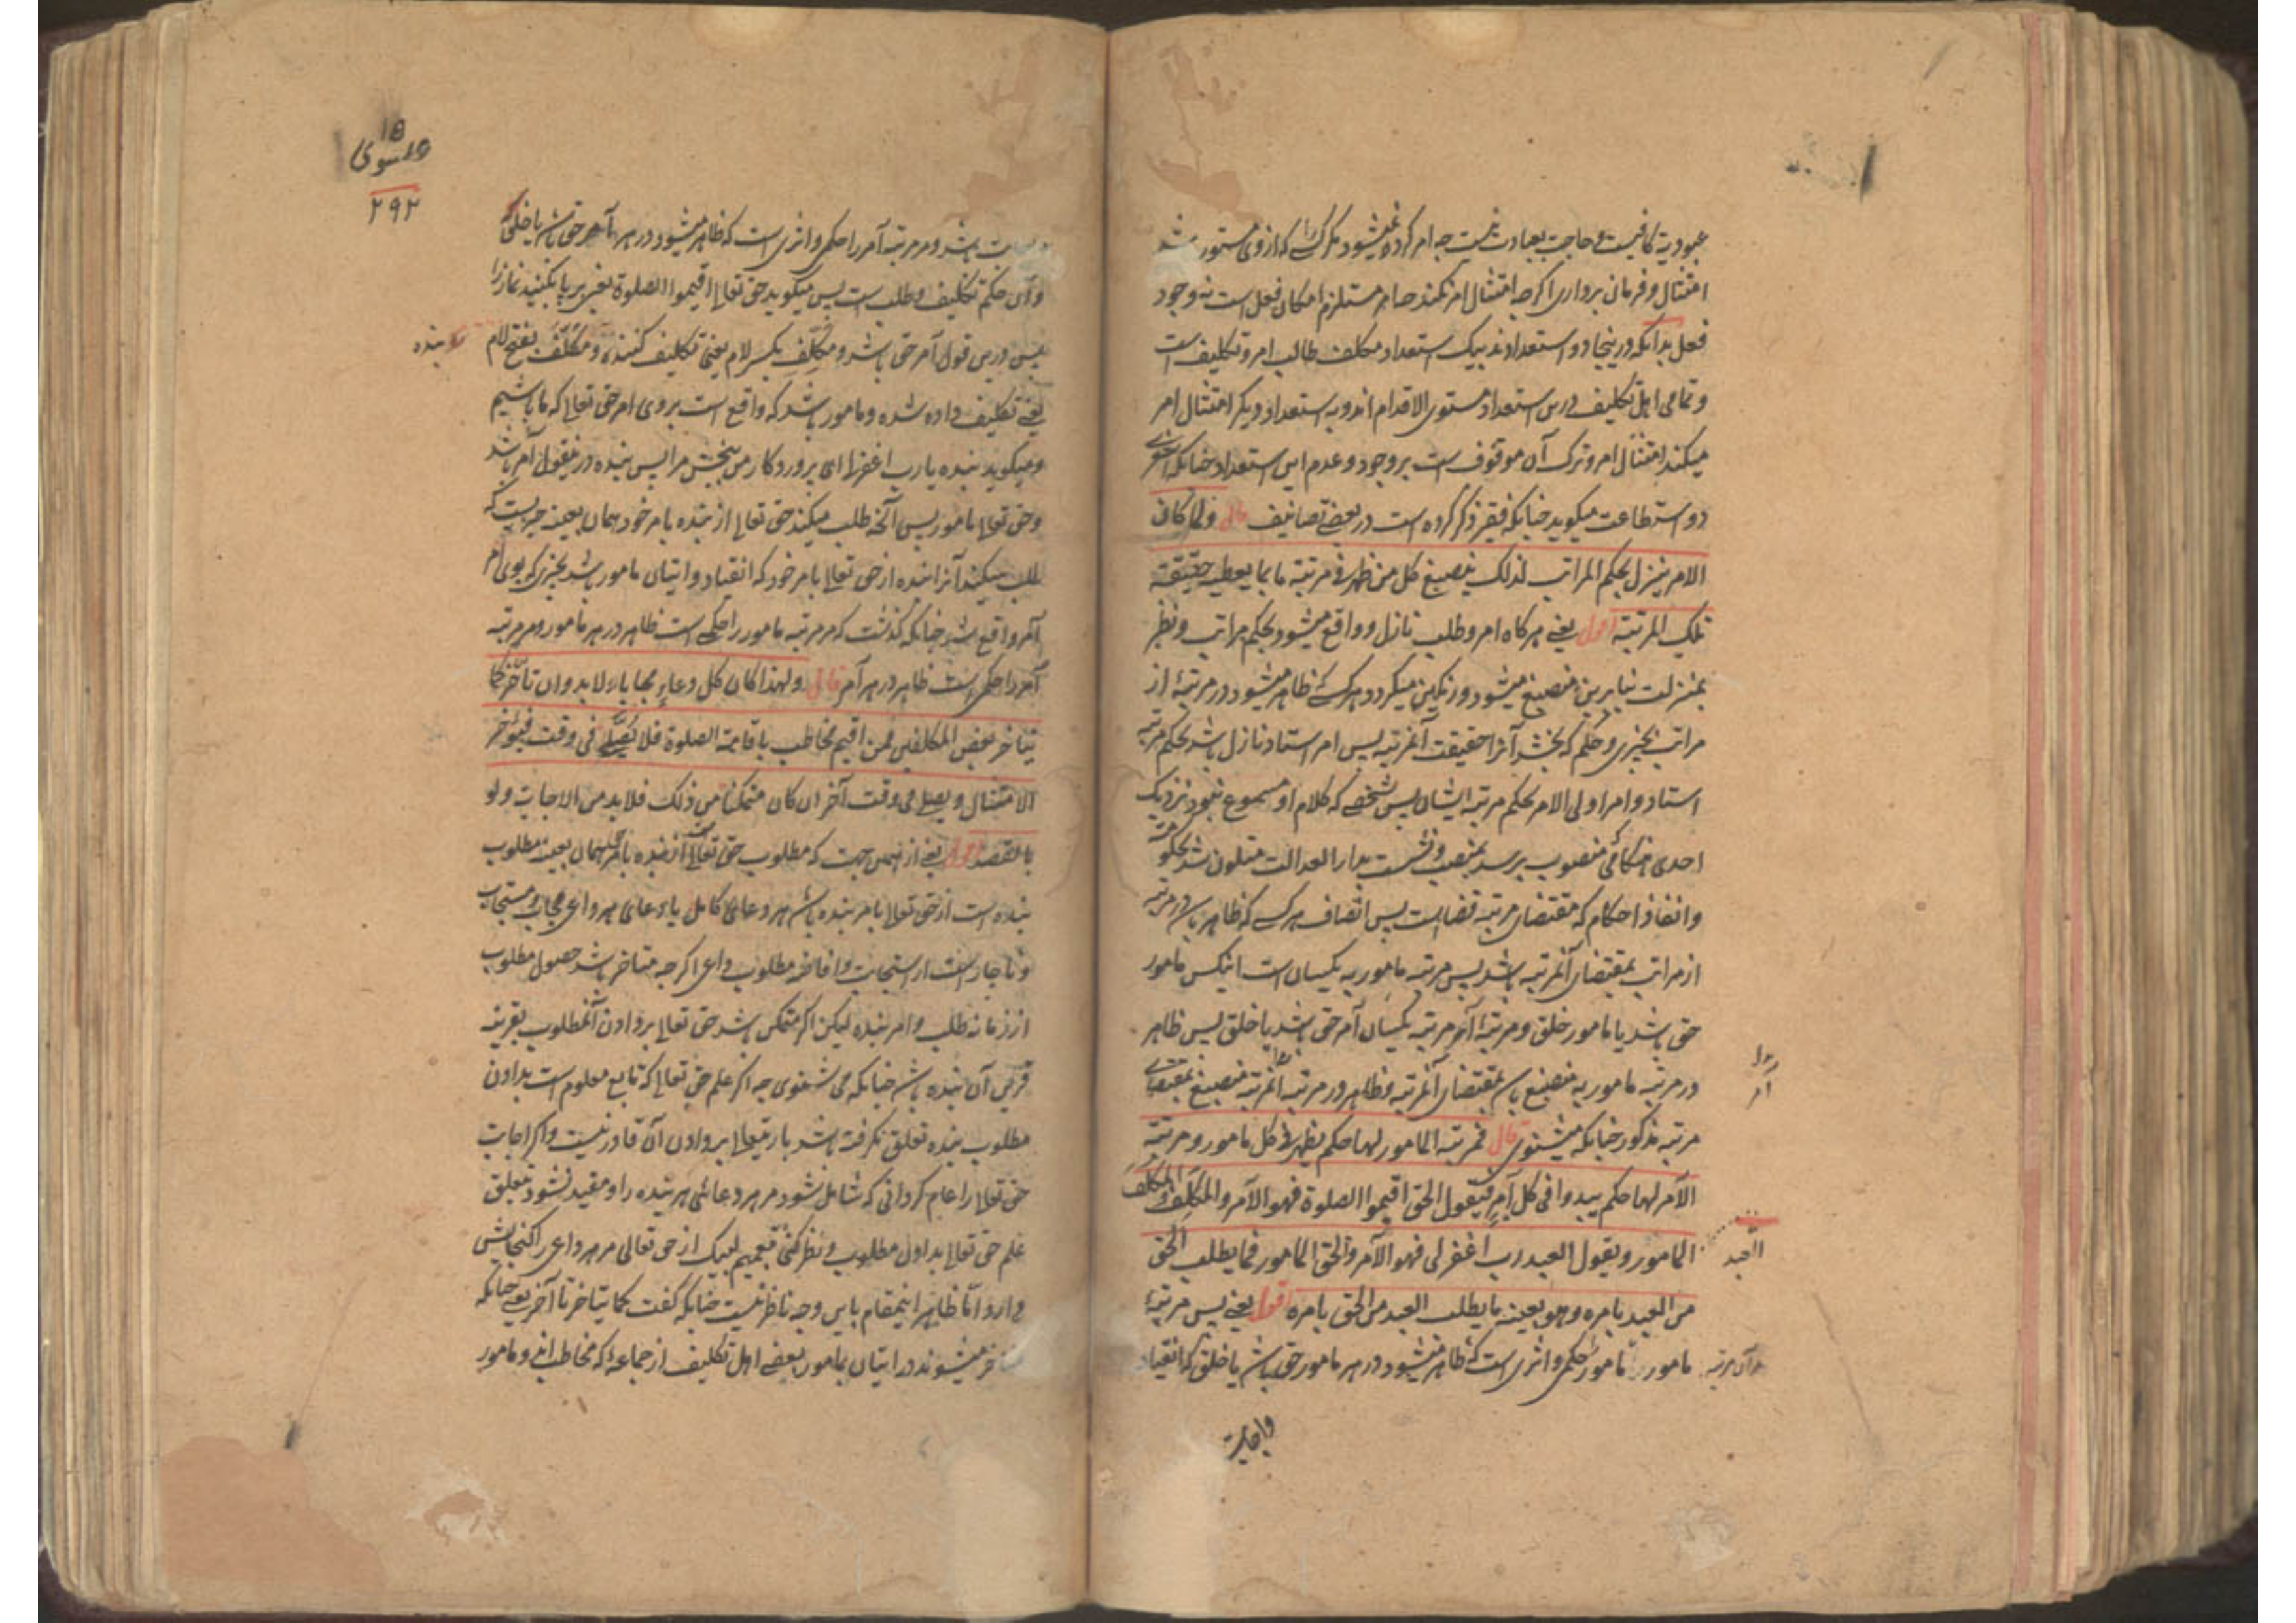 عبودیة کافیست و حاجت بعبادت نیست چه امر کرده نمیشود مگر کسی را که از وی متصور باشد
امتثال و فرمان برداری اگرچه امتثال امر نکند چه امر مستلزم امکان فعل است نه وجود
فعل بدانکه درینجا دو استعدادند بیک استعداد مکلف طالب امر و تکلیف است
و تمامی اهل تکلیف درین استعداد مستوی الاقدام اند و به استعداد دیگر امتثال امر
میکند امتثال امر و ترک آن موقوف است بر وجود و عدم این استعداد چنانکه اشعری
دو استطاعت میگوید چنانکه فقیر ذکر کرده است در بعضی تصانیف قال و لما کان
الامر ینزل بحکم المراتب لذلک ینصبغ کل من ظهر فی مرتبة ما بما یعطیه حقیقة
تلک المرتبة اقول یعنی هرگاه امر و طلب نازل و واقع میشود بحکم مراتب و نظر
بمنزلت بنابرین منصبغ میشود و رنگین میگردد هر کسی که ظاهر میشود در مرتبۀ از
مراتب بچیزی و حکم که بخشد آنرا حقیقت آنمرتبه پس امر استاد نازل باشد بحکم مرتبه
استاد و امر اولی الامر بحکم مرتبه ایشان پس شخصی که کلام او مسموع نبود نزدیک
احدی هنگامی منصوب برسد بمنصب و نشست بدار العدالت متلون شد بحکومت
و انفاذ احکام که مقتضای مرتبه قضاست پس اتصاف هر کسی که ظاهر باشد در مرتبه
از مراتب بمقتضای آنمرتبه باشد پس مرتبه مامور به یکسان است اینکس مامور
حق باشد یا مامور خلق و مرتبۀ آمر مرتبه یکسان آمر حق باشد یا خلق پس ظاهر
در مرتبه مامور به منصبغ باشد بمقتضای آنمرتبه و ظاهر در مرتبه آنمرتبه منصبغ بمقتضای
مرتبه مذکور چنانکه میشنوی قال فمرتبة المامور لها حکم یظهر فی کل مامور و مرتبة
الآمر لها حکم یبدو فی کل آمر فیقول الحق اقیموا الصلوة فهو الآمر و المکلِّف و المکلَّف
المامور و یقول العبد رب اغفر لی فهو الآمر و الحق المامور فما یطلب الحق
العبد
من العبد بامره و هو بعینه ما یطلب العبد من الحق بامره اقول یعنی پس مرتبۀ
مامور مامور حکمی و اثری است که ظاهر میشود در هر مامور حق باشد یا خلق که انقیاد
و اجابت
۲۹۲
و اجابت باشد و مر مرتبه آمر را حکمی و اثری است که ظاهر میشود در هر آمر حق باشد یا خلق
و آن حکم تکلیف و طلب است پس میگوید حق تعالی اقیموا الصلوة یعنی برپا بکنید نماز را
پس درین قول آمر حق باشد و مکلِّف بکسر لام یعنی تکلیف کننده و مکلَّف بفتح لام
بنده
یعنی تکلیف داده شده و مامور باشد که واقع است بروی امر حق تعالی که ما باشیم
و میگوید بنده یا رب اغفر لی ای پروردگار من ببخش مرا پس بنده درینقول آمر باشد
و حق تعالی مامور پس آنچه طلب میکند حق تعالی از بنده بامر خود همان بعینه چیزیست که
طلب میکند آنرا بنده از حق تعالی بامر خود که انقیاد و اتیان مامور باشد بچیزی که بوی امر
آمر واقع شد چنانکه گذشت که مر مرتبه مامور را حکمی است ظاهر در هر مامور و مر مرتبه
آمر را حکمی است ظاهر در هر آمر قال و لهذا کان کل دعاء مجابا و لا بد و ان تأخر کما
یتاخر بعض المکلفین فمن اقیم مخاطب باقامة الصلوة فلا یصلی فی وقت فیؤخر
الامتثال و یصلی فی وقت آخر ان کان متمکنا من ذلک فلا بد من الاجابة و لو
بالقصد اقول یعنی از همین جهت که مطلوب حق تعالی از بنده بامر همان بعینه مطلوب
بنده است از حق تعالی بامر بنده باشد هر دعای کامل یا دعای هر داعی مجاب و مستجاب
و ناچار است از استجابت و افاضه مطلوب داعی اگرچه متاخر باشد حصول مطلوب
از زمانه طلب و امر بنده لیکن اگر متمکن باشد حق تعالی بر دادن آنمطلوب بقرینه
قرین آن بنده باشد چنانکه می شنوی چه اگر علم حق تعالی که تابع معلوم است بدادن
مطلوب بنده تعلق نگرفته باشد باریتعالی بر دادن آن قادر نیست و اگر اجابت
حق تعالی را عام گردانی که شامل شود مر هر دعائی هر بنده را و مقید نشود بتعلق
علم حق تعالی بدادن مطلوب و نظر کنی بتعمیم لبیک از حق تعالی مر هر داعی را گنجایش
دارد اما ظاهر اینمقام باین وجه ناظر نیست چنانکه گفت کما یتاخر تا آخر یعنی چنانکه
متاخر میشوند در اتیان بمامور بعضی اهل تکلیف از جماعۀ که مخاطب اند و مامور